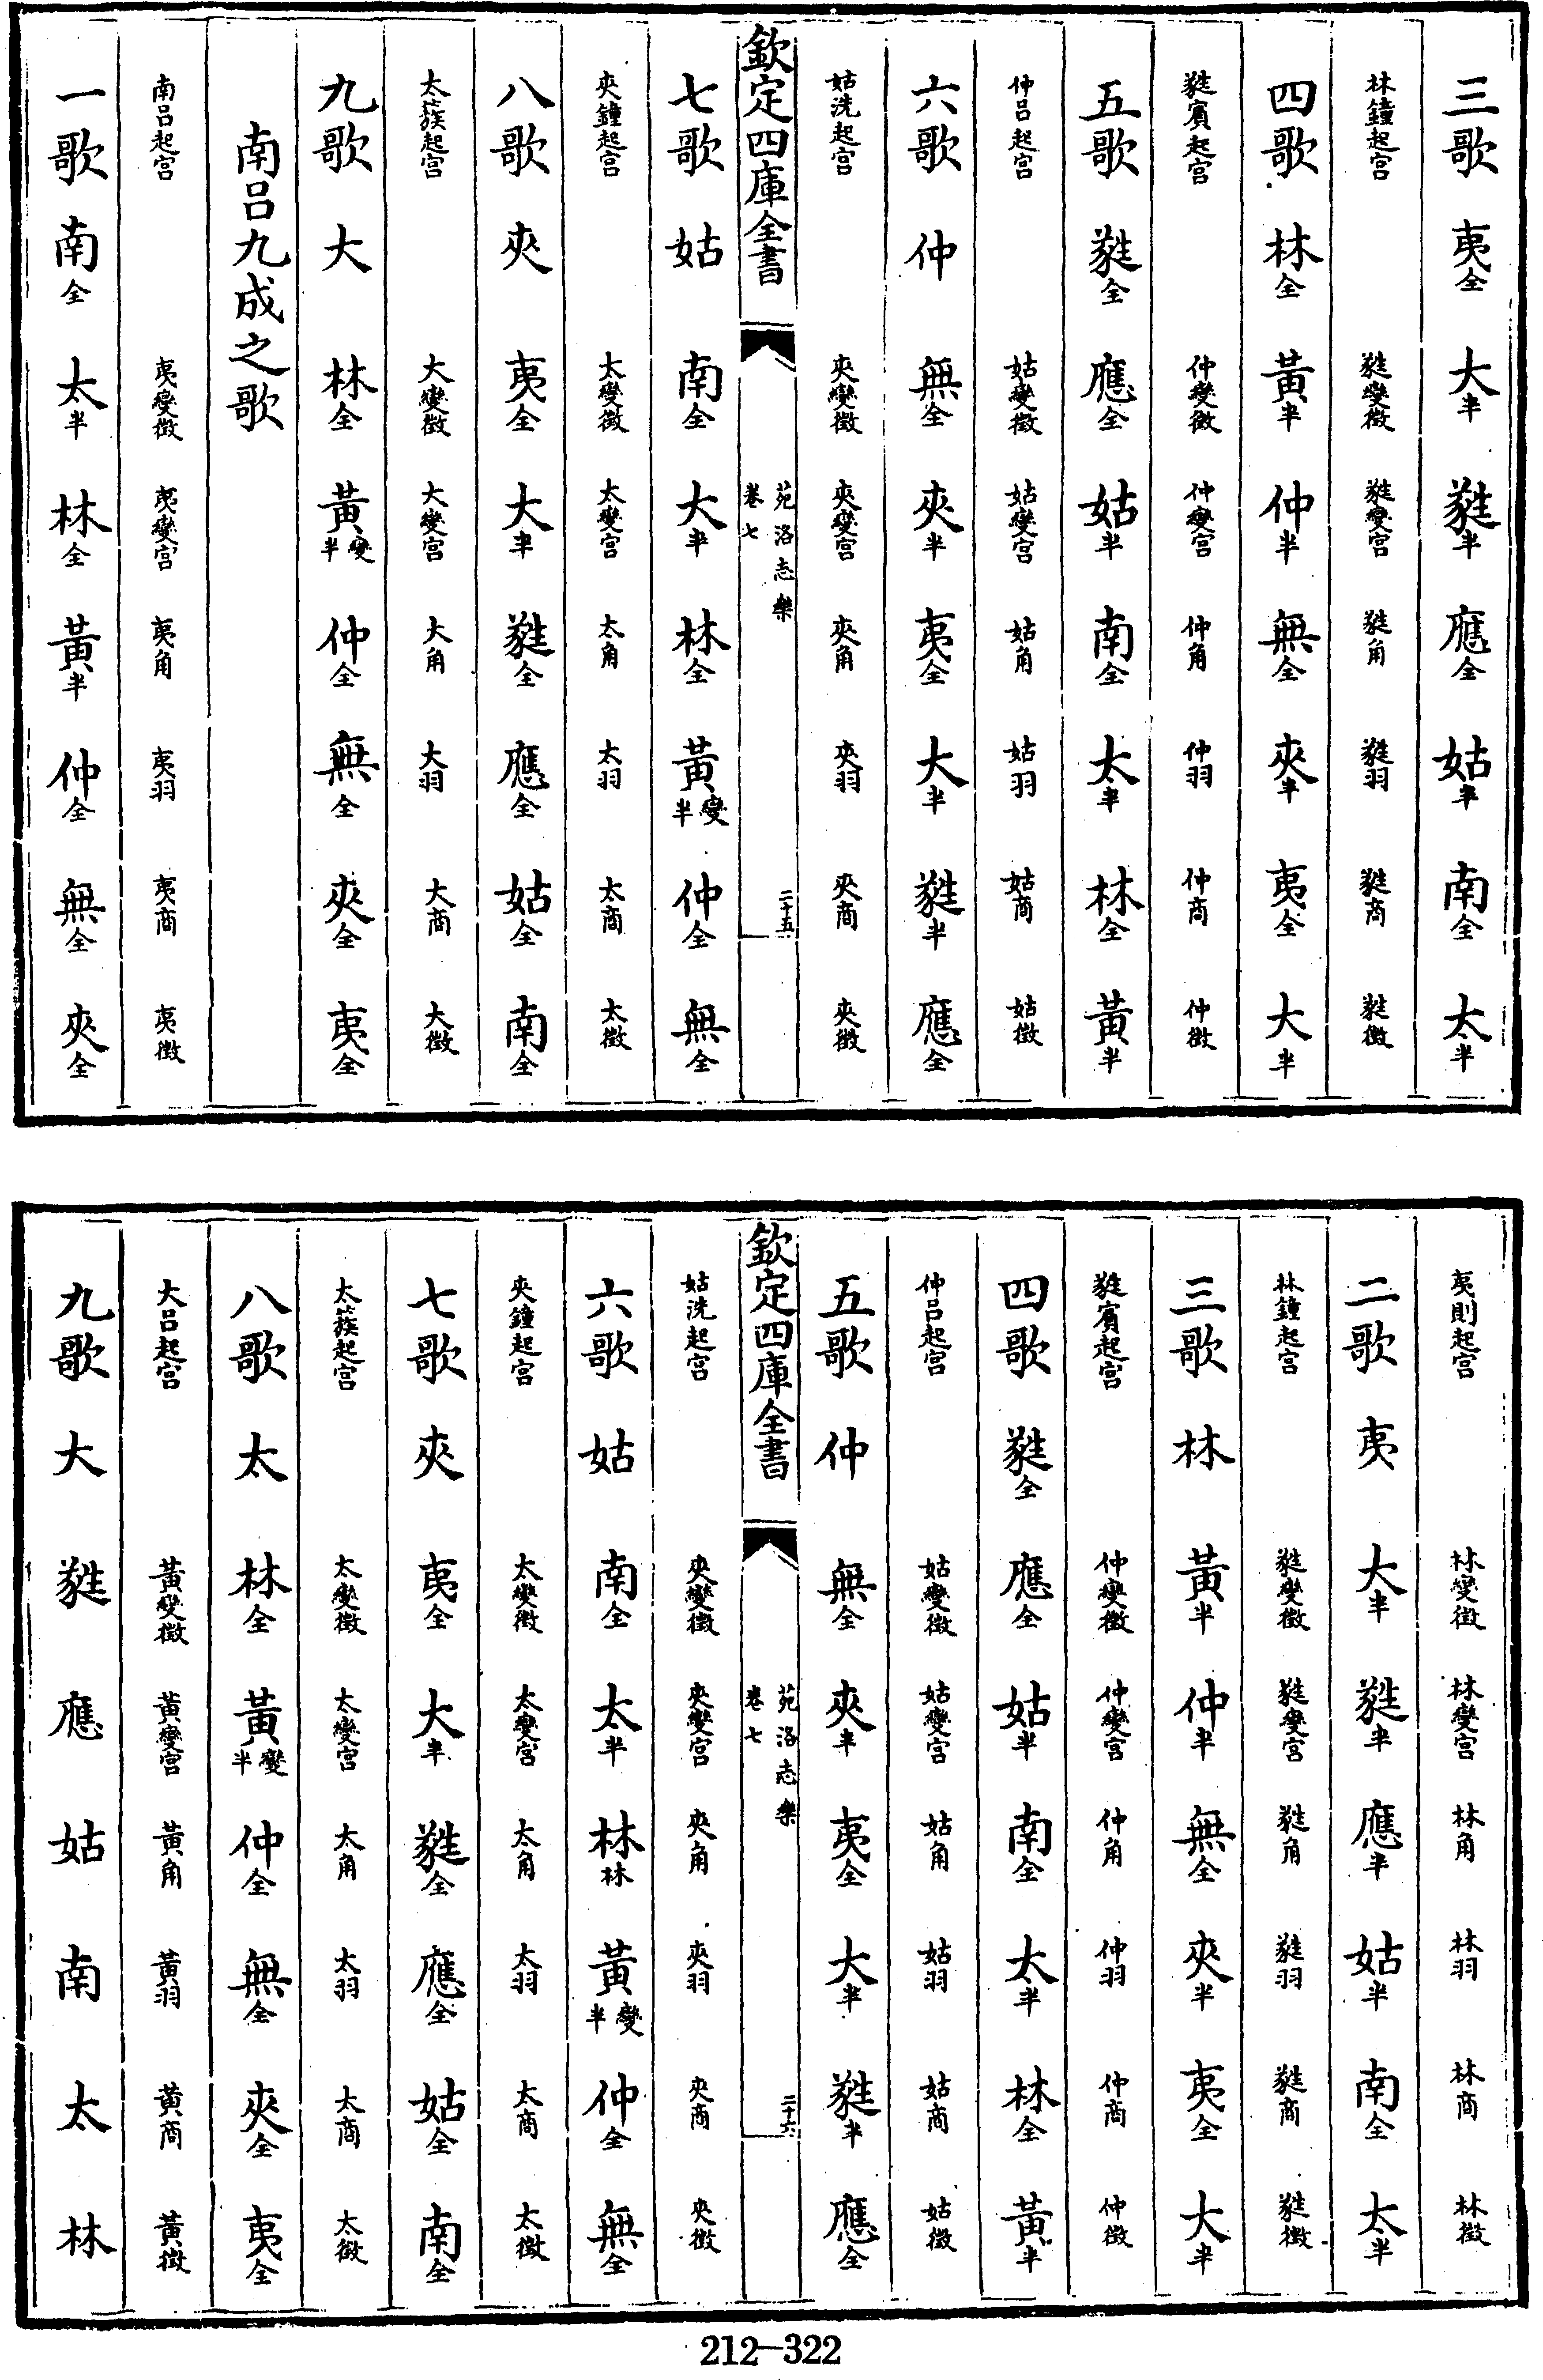 三歌 夷全 大半 蕤半 應全 姑半 南全 太半
林鐘起宮 蕤變徵 蕤變宮 蕤角 蕤羽 蕤商 蕤徵
四歌 林全 黃半 仲半 無全 夾半 夷全 大半
蕤賓起宮 仲變徵 仲變宮 仲角 仲羽 仲商 仲徵
五歌 蕤全 應全 姑半 南全 太半 林全 黃半
仲呂起宮 姑變徵 姑變宮 姑角 姑羽 姑商 姑徵
六歌 仲 無全 夾半 夷全 大半 蕤半 應全
姑洗起宮 夾變徵 夾變宮 夾角 夾羽 夾商 夾徵
欽定四庫全書 苑洛志樂 卷七 二十五
七歌 姑 南全 大半 林全 黃變半 仲全 無全
夾鐘起宮 太變徵 太變宮 太角 太羽 太商 太徵
八歌 夾 夷全 大半 蕤全 應全 姑全 南全
太蔟起宮 大變徵 大變宮 大角 大羽 大商 大徵
九歌 大 林全 黃變半 仲全 無全 夾全 夷全
南呂九成之歌
南呂起宮 夷變徵 夷變宮 夷角 夷羽 夷商 夷徵
一歌 南全 太半 林全 黃半 仲全 無全 夾全
夷則起宮 林變徵 林變宮 林角 林羽 林商 林徵
二歌 夷 大半 蕤半 應半 姑半 南全 太半
林鐘起宮 蕤變徵 蕤變宮 蕤角 蕤羽 蕤商 蕤徵
三歌 林 黃半 仲半 無全 夾半 夷全 大半
蕤賓起宮 仲變徵 仲變宮 仲角 仲羽 仲商 仲徵
四歌 蕤全 應全 姑半 南全 太半 林全 黃半
仲呂起宮 姑變徵 姑變宮 姑角 姑羽 姑商 姑徵
五歌 仲 無全 夾半 夷全 大半 蕤半 應全
欽定四庫全書 苑洛志樂 卷七 二十六
姑洗起宮 夾變徵 夾變宮 夾角 夾羽 夾商 夾徵
六歌 姑 南全 太半 林林 黃變半 仲全 無全
夾鐘起宮 太變徵 太變宮 太角 太羽 太商 太徵
七歌 夾 夷全 大半 蕤全 應全 姑全 南全
太蔟起宮 太變徵 太變宮 太角 太羽 太商 太徵
八歌 太 林全 黃變半 仲全 無全 夾全 夷全
大呂起宮 黃變徵 黃變宮 黃角 黃羽 黃商 黃徵
九歌 大 蕤 應 姑 南 太 林
212-322